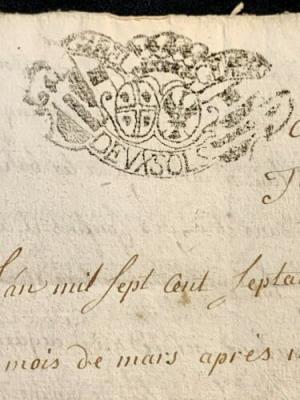 DEUX SOLS
L'án mil sept cent septa
mois de mars après